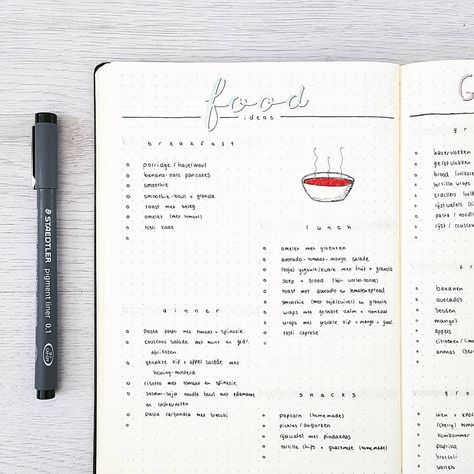 food
ideas
breakfast
porridge / havermout
banana-oats pancakes
smoothie
smoothie-bowl + granola
toast met beleg
omelet (met tomaat)
tosti kaas
lunch
omelet met groenten
avocado-tomaat-mango salade
(soja) yoghurt/kwark met fruit + granola
soep + brood
toast met avocado en tomatenspread
smoothie (met tofu/zuivel) en granola
wraps met gerookte zalm + roomkaas
wraps met gerookte kip + mango + guac
tosti caprese
dinner
pasta pesto met tomaat + spinazie
couscous salade met munt en gedr.
abrikozen
gerookte kip + appel salade met
honing-mosterd
risotto met tomaat en spinazie
sesam-soja noodle bowl met edamame
en cashewnoten
pasta carbonara met broccoli
snacks
popcorn (homemade)
pickles / augurken
rijstwafel met pindakaas
tortilla chips + guacamole (homemade)
G
havervlokken
gerstvlokken
brood
tortilla wraps
crackers
rijstwafels
pasta / noodles
rijst / couscous
bananen
avocado's
bessen
mango's
appels
citroenen / lim
ananas
komkommer
paprika
broccoli
wortels
STAEDTLER
pigment liner 0.1